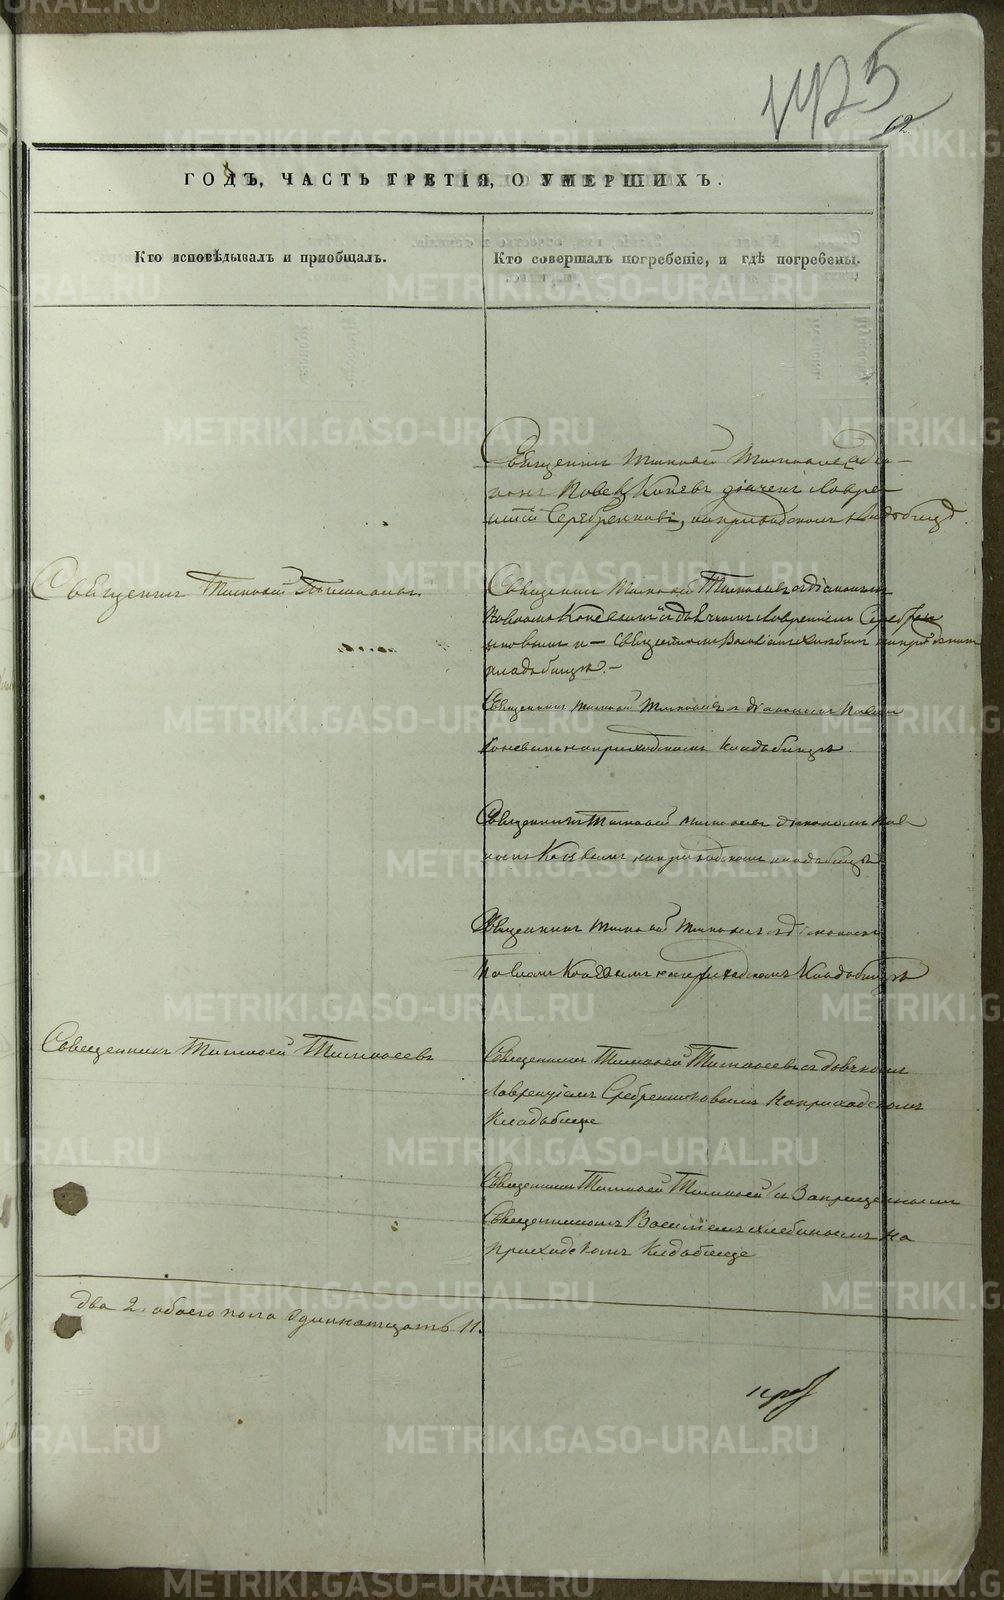 1425
62
ГОДЪ, ЧАСТЬ ТРЕТІЯ, О УМЕРШИХЪ.
Кто исповѣдывалъ и пріобщалъ.
Кто совершалъ погребеніе, и гдѣ погребены.
Священникъ Тимофей Тимофеевъ
Павелъ Коневъ дьячекъ Лаврен
тій Серебренниковъ, на приходскомъ кладбищѣ
Священникъ Тимофей Тимофеевъ
Священникъ Тимофей Тимофеевъ съ діакономъ
Павломъ Коневымъ и дьячкомъ Лаврентіемъ Серебрен
никовымъ и священникомъ Василіемъ на приходскомъ
кладбищѣ.
Священникъ Тимофей Тимофеевъ съ діакономъ Павломъ
Коневымъ на приходскомъ кладбищѣ.
Священникъ Тимофей Тимофеевъ діакономъ Пав
ломъ Коневымъ на приходскомъ кладбищѣ
Священникъ Тимофей Тимофеевъ съ діакономъ
Павломъ Коневымъ на приходскомъ кладбищѣ
Священникъ Тимофей Тимофеевъ
Священникъ Тимофей Тимофеевъ съ дьячкомъ
Лаврентіемъ Сребренниковымъ на приходскомъ
кладбище
Священникъ Тимофей Тимофеевъ и Запрещеннымъ
Священникомъ Василіемъ Хлебинымъ на
приходскомъ кладбище
два 2. обоего пола одиннатцать 11.
METRIKI.GASO-URAL.RU